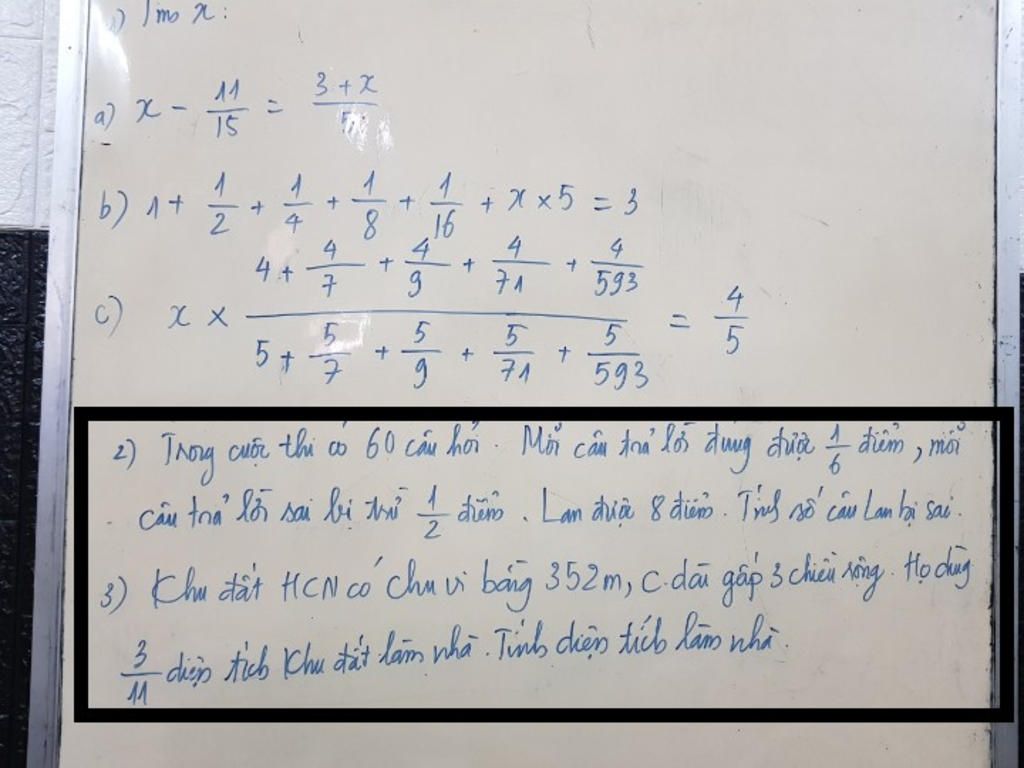 1) Tìm x:
a) x - 11/15 = 3 + x/5
b) 1 + 1/2 + 1/4 + 1/8 + 1/16 + x × 5 = 3
c) x × (4 + 4/7 + 4/9 + 4/71 + 4/593)/(5 + 5/7 + 5/9 + 5/71 + 5/593) = 4/5
2) Trong cuộc thi có 60 câu hỏi. Mỗi câu trả lời đúng được 1/6 điểm, mỗi
câu trả lời sai bị trừ 1/2 điểm. Lan được 8 điểm. Tính số câu Lan bị sai.
3) Khu đất HCN có chu vi bằng 352m, C.dài gấp 3 chiều rộng. Họ dùng
3/11 diện tích khu đất làm nhà. Tính diện tích làm nhà.